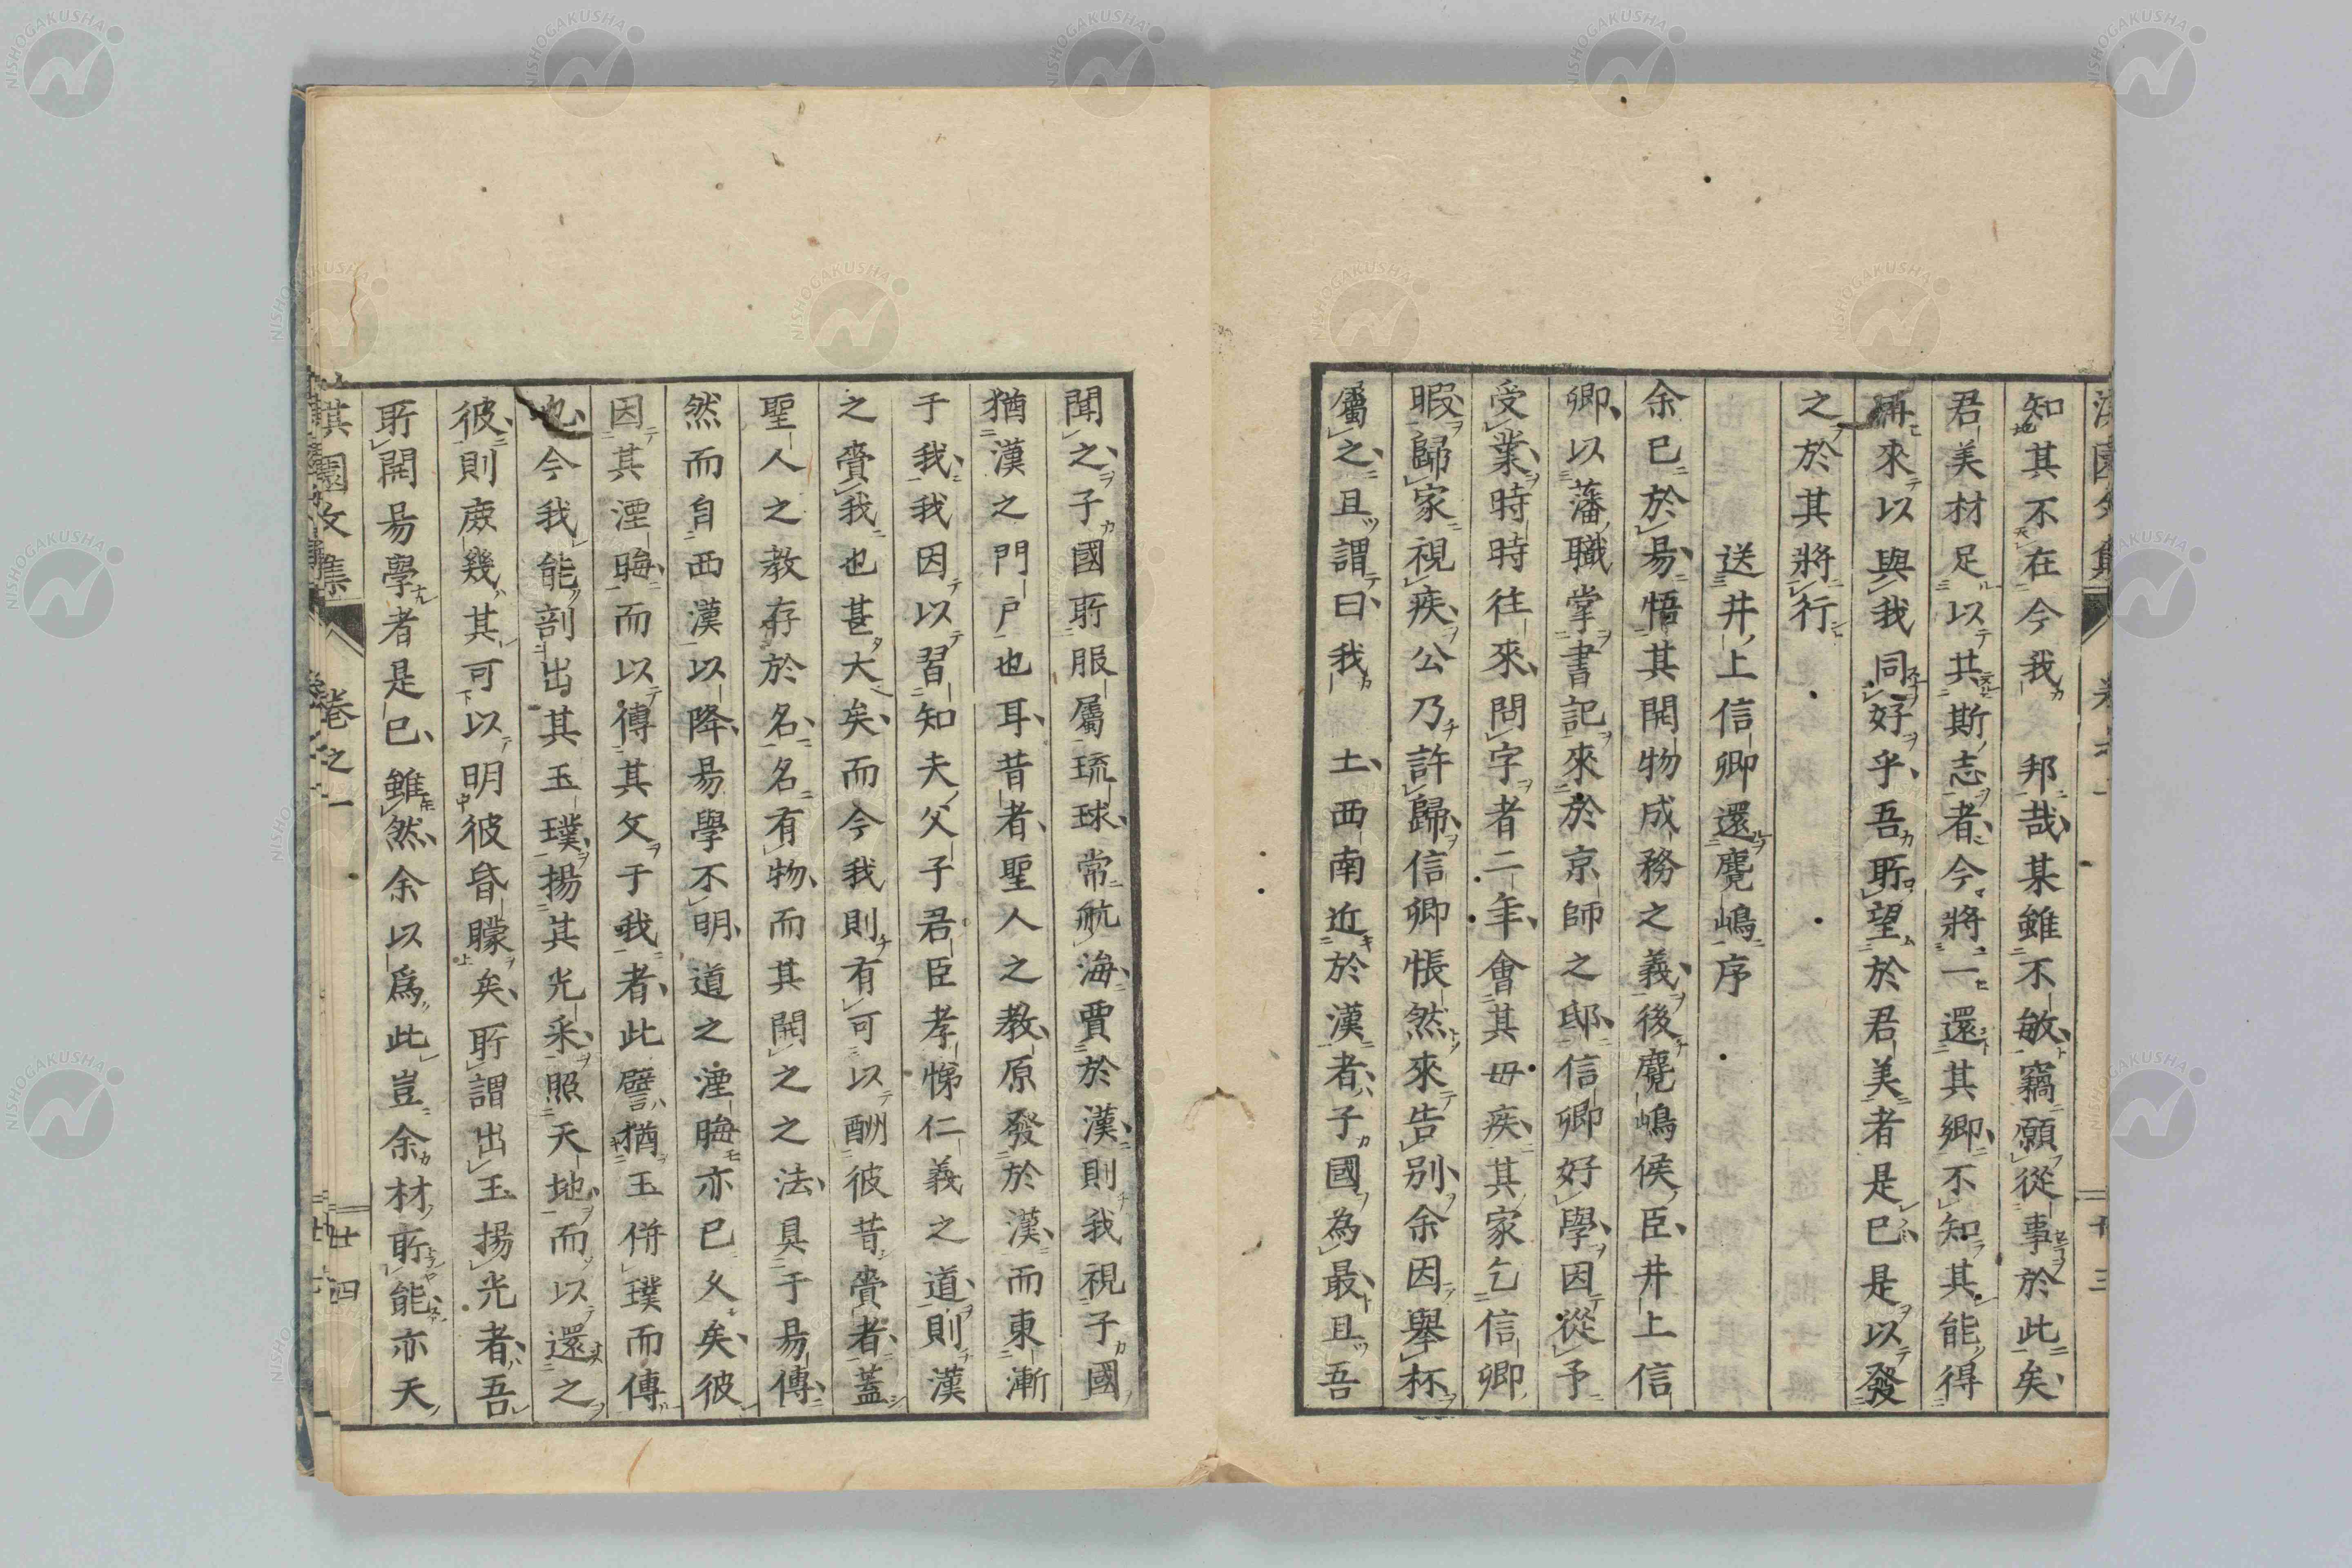 知其不在今我 邦哉某雖不敏竊願從事於此矣
君美材足以共斯志者今將一還其鄉不知其能得
再來以與我同好乎吾所望於君美者是已是以發
之於其將行
送井上信卿還麑嶋序
余已於易悟其開物成務之義後麑嶋侯臣井上信
卿以藩職掌書記來於京師之邸信卿好學因從予
受業時時往來問字者二年會其毋疾其家乞信卿
暇歸家視疾公乃許歸信卿悵然來告別余因舉杯
屬之且謂曰我 土西南近於漢者子國為最且吾
聞之子國所服屬琉球常航海賈於漢則我視子國
猶漢之門戶也耳昔者聖人之教原發於漢而東漸
于我我因以習知夫父子君臣孝悌仁義之道則漢
之賚我也甚大矣而今我則有可以酬彼昔賚者蓋
聖人之教存於名名有物而其開之之法具于易傳
然而自西漢以降易學不明道之湮晦亦已久矣彼
因其湮晦而以傳其文于我者此譬猶玉併璞而傳
也今我能剖出其玉璞揚其光采照天地而以還之
彼則庶幾其可以明彼昏矇矣所謂出玉揚光者吾
所開易學者是已雖然余以爲此豈余材所能亦天
淇園文集 卷之一 廿四